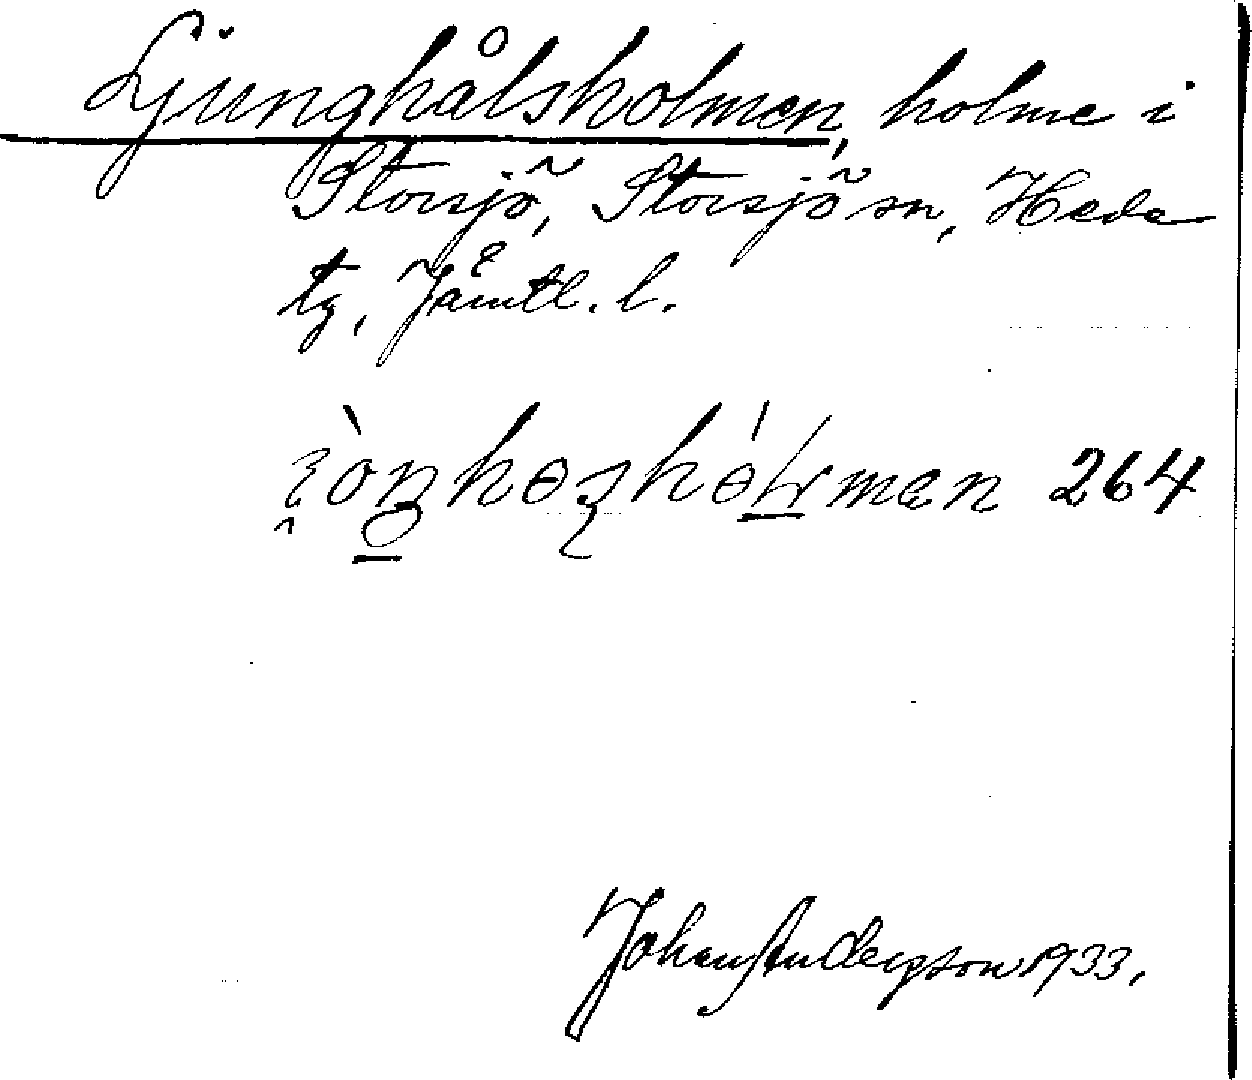 Ljunghålsholmen, holme i
Storsjö, Storsjö sn, Hede
tg, Jämtl. l.
264
Johan Anderson 1933.